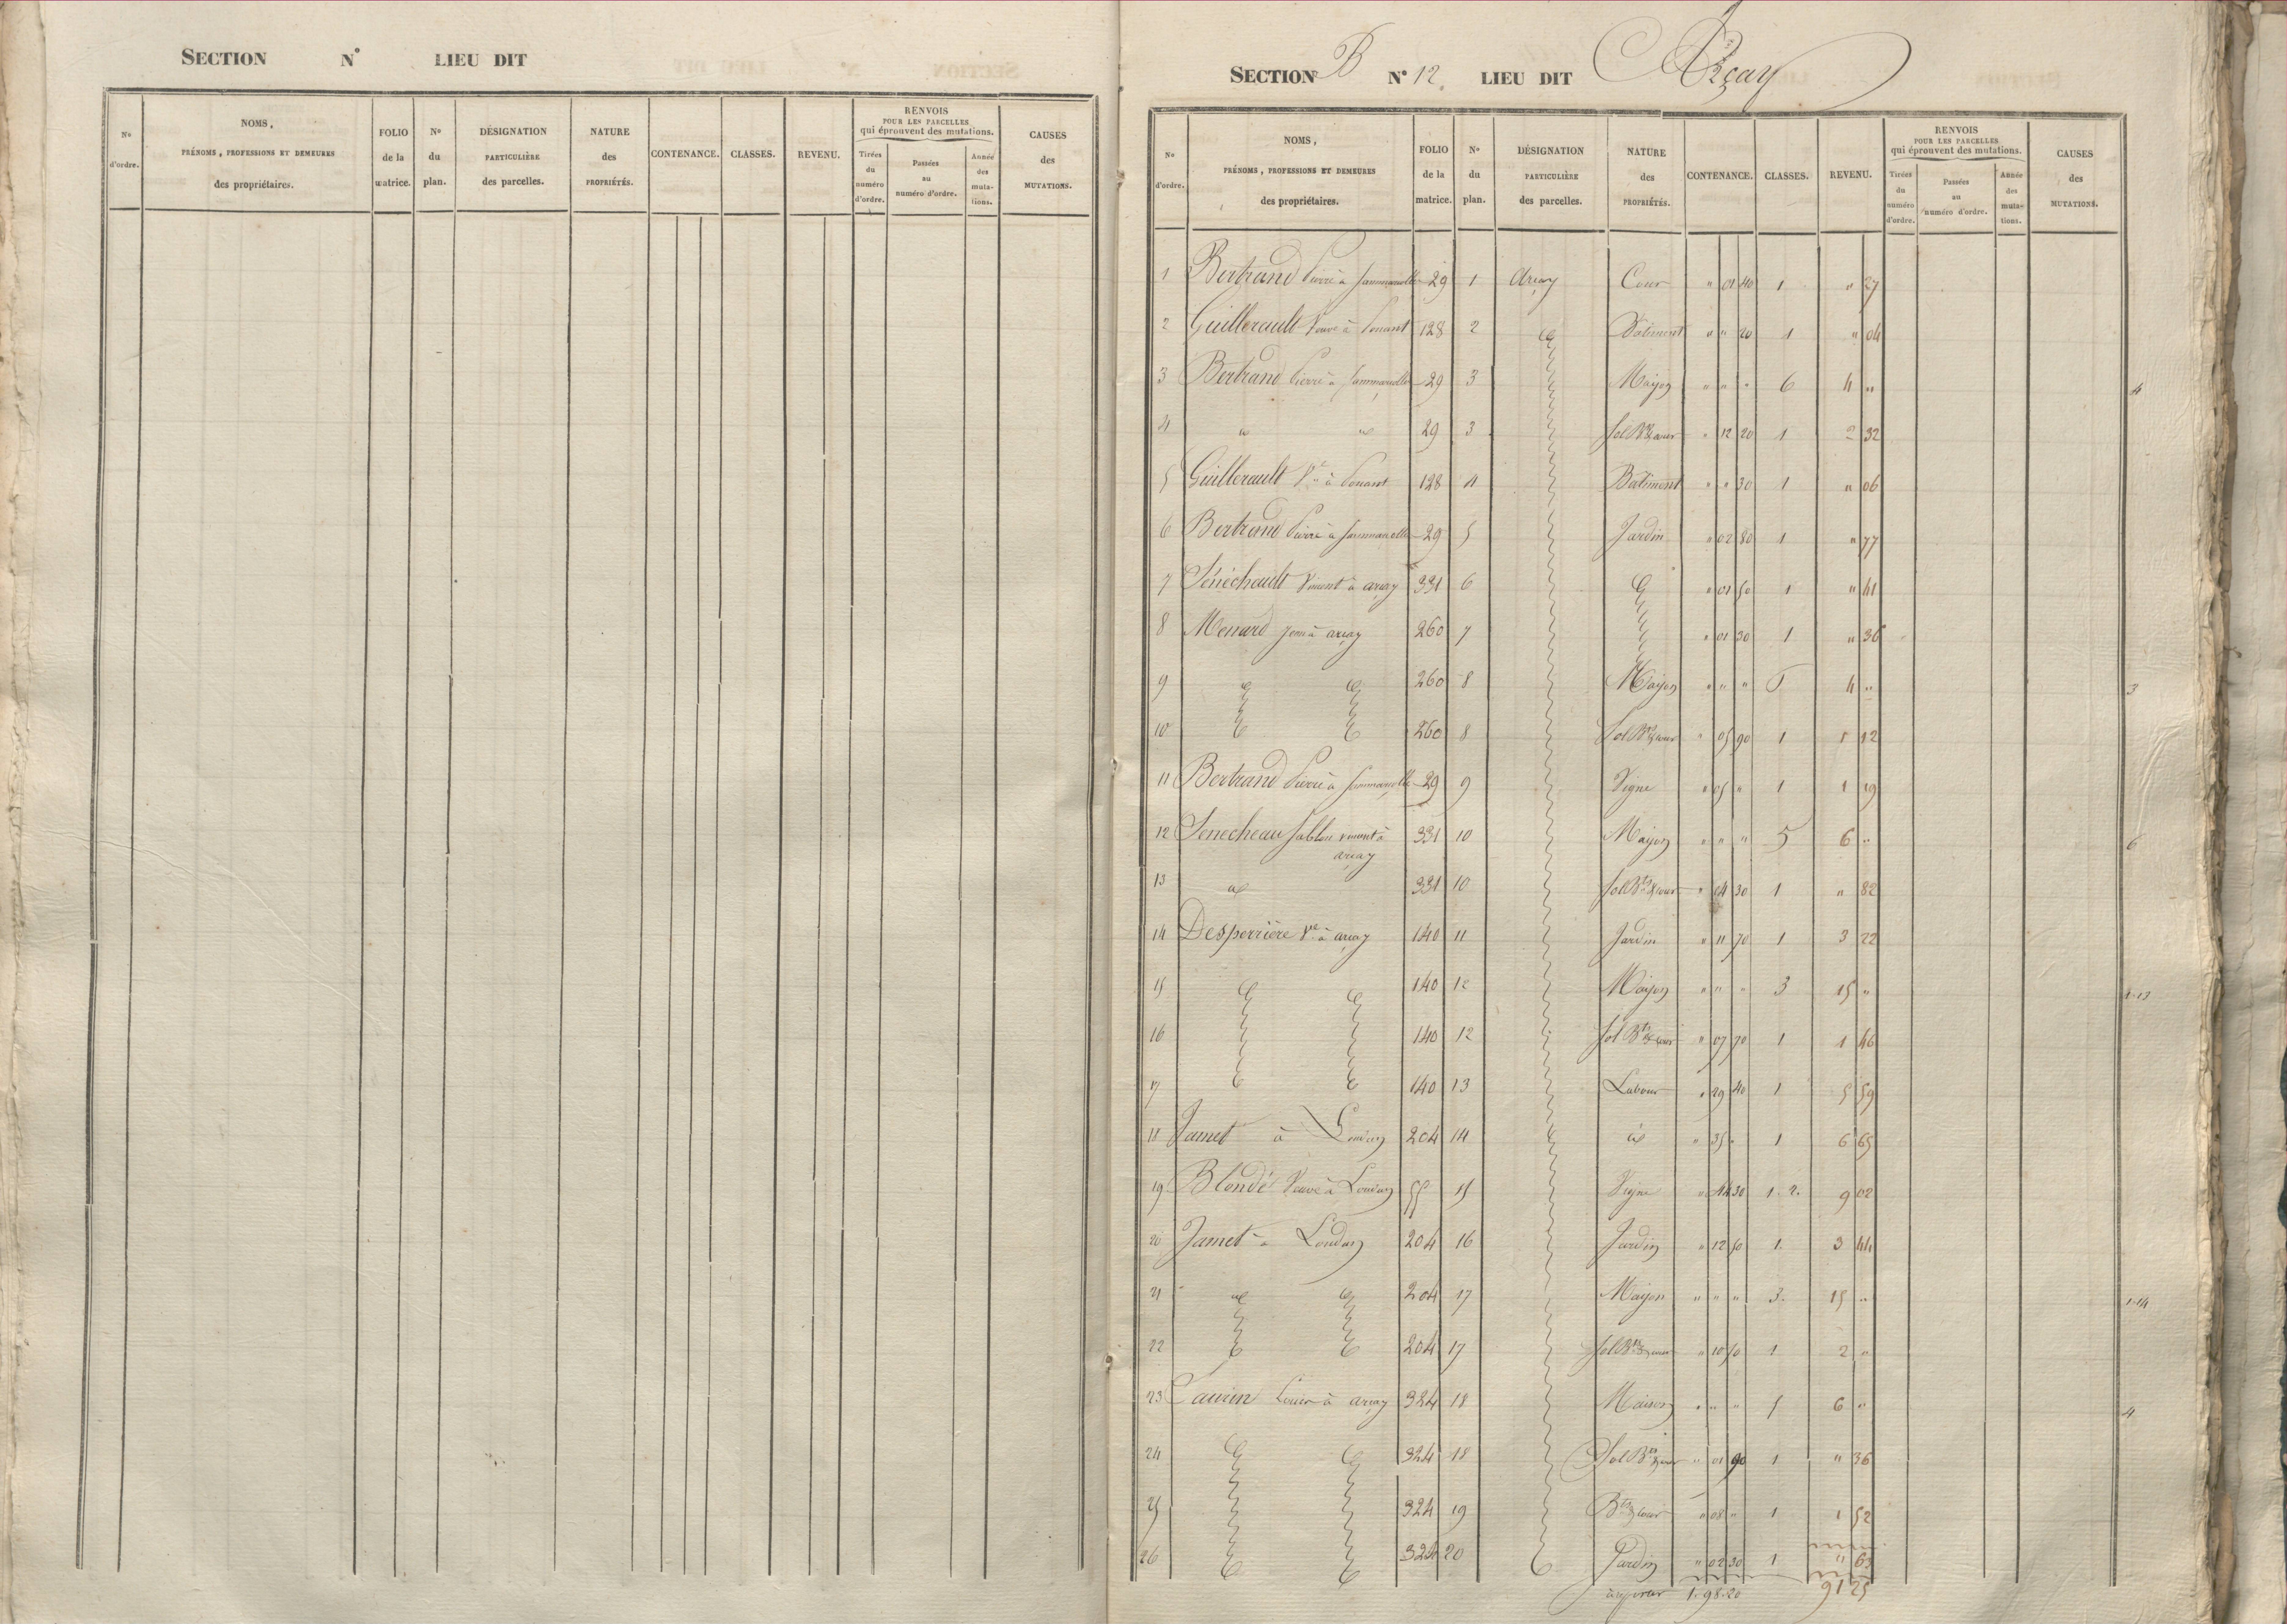 SECTION N° LIEU DIT
N° d'ordre. NOMS, PRÉNOMS, PROFESSIONS ET DEMEURES des propriétaires. FOLIO de la matrice. N° du plan. DÉSIGNATION PARTICULIÈRE des parcelles. NATURE des PROPRIÉTÉS. CONTENANCE. CLASSES. REVENU. RENVOIS POUR LES PARCELLES qui éprouvent des mutations. Tirées du numéro d'ordre. Passées au numéro d'ordre. Année des muta-tions. CAUSES des MUTATIONS.
SECTION B N° 12. LIEU DIT Arçay
N° d'ordre. NOMS, PRÉNOMS, PROFESSIONS ET DEMEURES des propriétaires. FOLIO de la matrice. N° du plan. DÉSIGNATION PARTICULIÈRE des parcelles. NATURE des PROPRIÉTÉS. CONTENANCE. CLASSES. REVENU. RENVOIS POUR LES PARCELLES qui éprouvent des mutations. Tirées du numéro d'ordre. Passées au numéro d'ordre. Année des muta-tions. CAUSES des MUTATIONS.
1 Bertrand Pierre à 29 1 Arçay Cour " 01 40 1 " 27
2 Guillerault Veuve à Pouant 128 2 Batiment " " 20 1 " 04
3 Bertrand Pierre à 29 3 Maison " " " 6 4 " 4
4 " " 29 3 Sol Bts & cour " 12 20 1 2 32
5 Guillerault Ve à Pouant 128 4 Batiment " " 30 1 " 06
6 Bertrand Pierre à 29 5 Jardin " 02 80 1 " 77
7 Sénéchault Vincent à arçay 331 6 " 01 50 1 " 41
8 Menard Jean à arçay 260 7 " 01 30 1 " 36
9 260 8 Maison " " " 6 4 " 3
10 260 8 Sol Bts & cour " 05 90 1 1 12
11 Bertrand Pierre à 29 9 Vigne " 05 " 1 1 19
12 Senecheau Sablon vincent à arçay 331 10 Maison " " " 5 6 " 6
13 331 10 Sol Bts & cour " 04 30 1 " 82
14 Desperrière Ve à arçay 140 11 Jardin " 11 70 1 3 22
15 140 12 Maison " " " 3 15 " 1-13
16 140 12 Sol Bts & cour " 07 70 1 1 46
17 140 13 Labour " 29 40 1 5 59
18 Jamet à Loudun 204 14 " 35 " 1 6 65
19 Blondé Veuve à Loudun 55 15 Vigne " 44 30 1. 2. 9 02
20 Jamet à Loudun 204 16 Jardin " 12 50 1. 3 44
21 204 17 Maison " " " 3. 15 " 1-14
22 204 17 Sol Bts & cour " 10 50 1 2 "
23 Taurin Louis à arçay 324 18 Maison " " " 5 6 " 4
24 324 18 Sol Bts & cour " 01 90 1 " 36
25 324 19 Bts & cour " 08 " 1 1 52
26 324 20 Jardin " 02 30 1 " 63
1. 98. 20 91 25